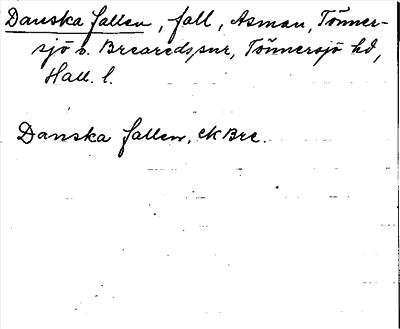 Danska fallen, fall, Asman, Tönner-
sjö o. Breareds snr, Tönnersjö hd,
Hall. l.
Danska fallen, ekBre.